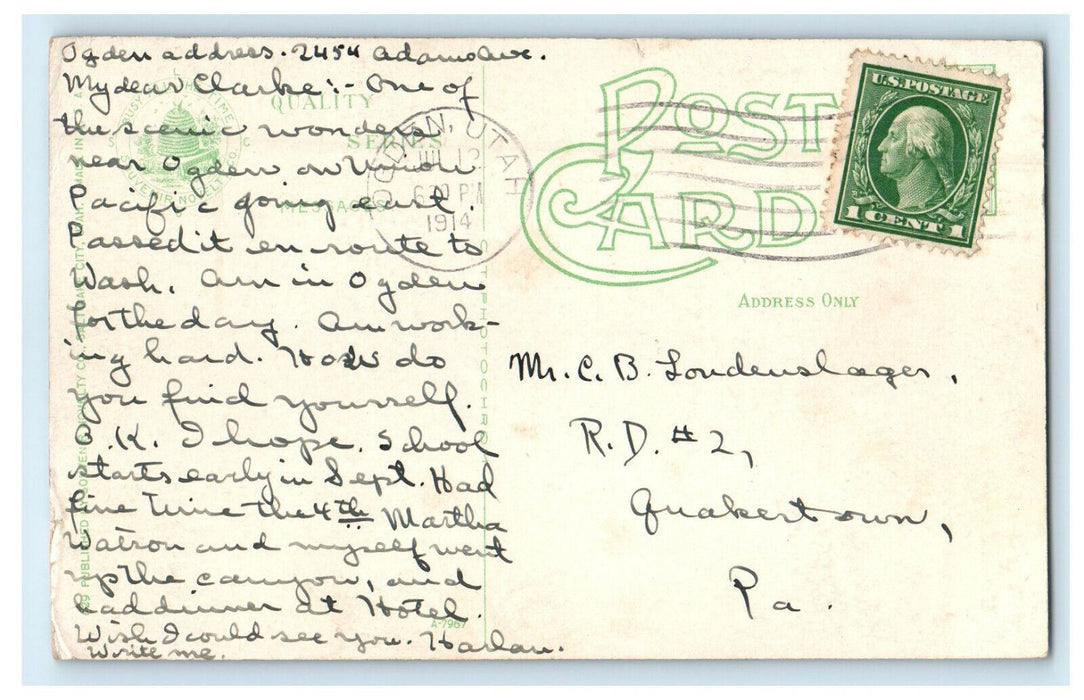 Ogden address. 2454 Adams Ave.
My dear Clarke:- One of
the scenic wonders
near Ogden on Union
Pacific going east.
Passed it en route to
Wash. Am in Ogden
for the day. Am work-
ing hard. How do
you find yourself.
O.K. I hope. School
starts early in Sept. Had
fine time the 4th Martha
Watson and myself went
up the canyon, and
had dinner at Hotel.
Wish I could see you. Harlan.
Write me.
QUALITY
SERIES
MESSAGES
OGDEN, UTAH
JUL 12
6 30 PM
1914
POST
CARD
U.S. POSTAGE
1 CENT 1
ADDRESS ONLY
Mr. C. B. Loudenslager,
R.D. #2,
Quakertown,
Pa.
A-7967